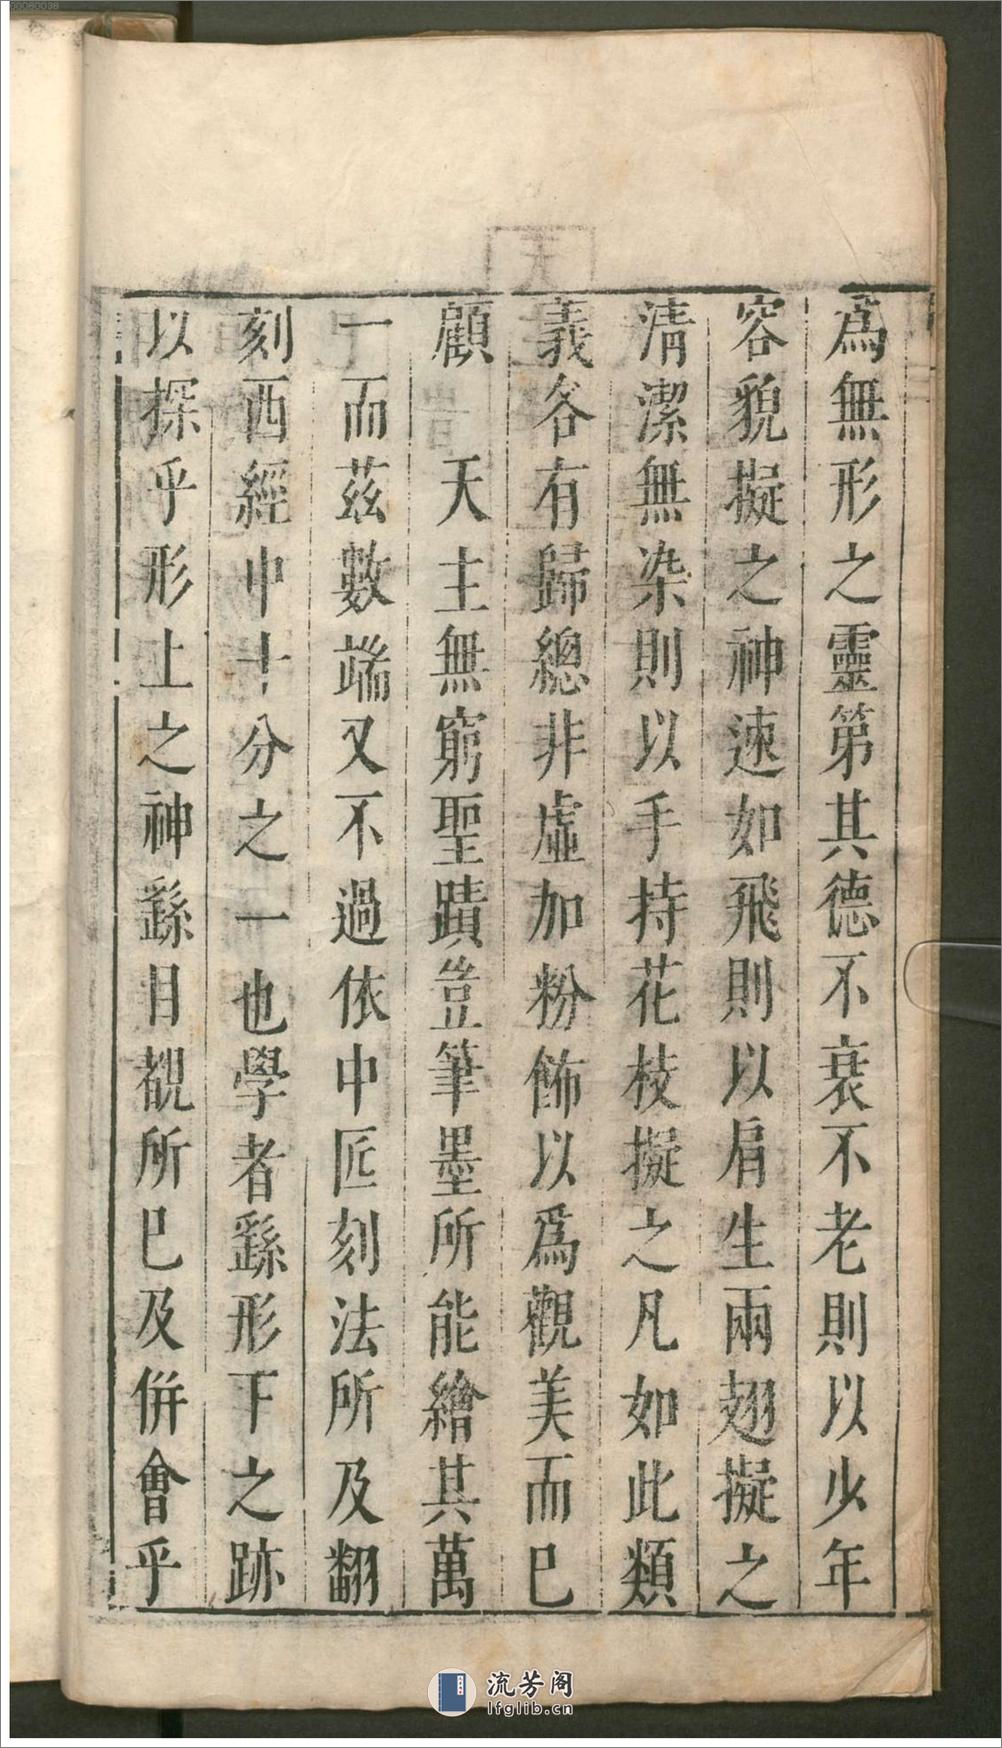 為無形之靈第其德不衰不老則以少年
容貌擬之神速如飛則以肩生兩翅擬之
清潔無染則以手持花枝擬之凡如此類
義各有歸總非虛加粉餙以為觀美而已
顧　天主無窮聖蹟豈筆墨所能繪其萬
一而茲數端又不過依中匠刻法所及翻
刻西經中十分之一也學者繇形下之跡
以探乎形上之神繇目覩所已及併會乎
流芳阁
lfglib.cn
00080038